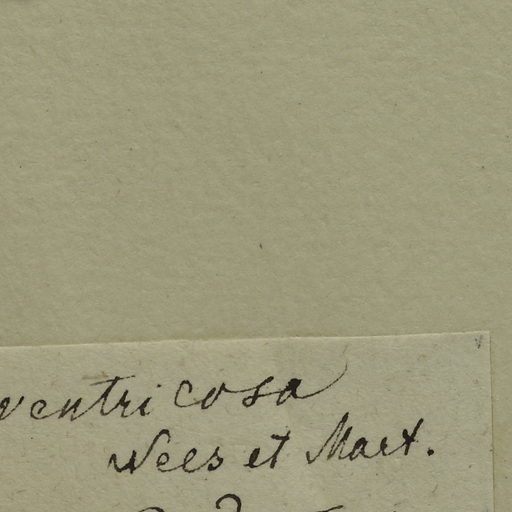 ventricosa
Nees et Mart.